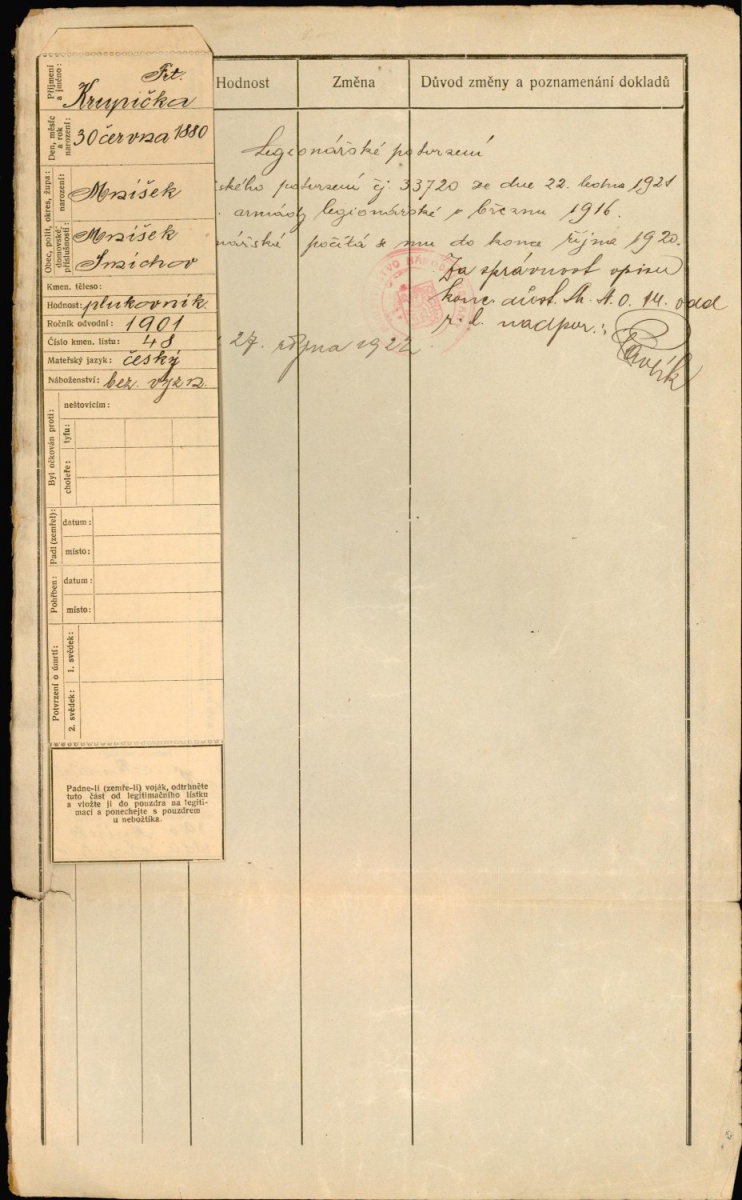 Příjmení a jméno: Frt. Krupička
Den, měsíc a rok narození: 30 června 1880
Obec, polit. okres, župa:
narození: Mníšek
domovské příslušnosti: Mníšek
Smíchov
Kmen. těleso:
Hodnost: plukovník.
Ročník odvodní: 1901
Číslo kmen. listu: 48
Mateřský jazyk: český
Náboženství: bez. vyzn.
Byl očkován proti:
neštovicím:
tyfu:
choleře:
Padl (zemřel):
datum:
místo:
Pohřben:
datum:
místo:
Potvrzení o úmrtí:
1. svědek:
2. svědek:
Padne-li (zemře-li) voják, odtrhněte
tuto část od legitimačního lístku
a vložte ji do pouzdra na legiti-
maci a ponechejte s pouzdrem
u nebožtíka.
Hodnost Změna Důvod změny a poznamenání dokladů
Legionářské potvrzení
ského potvrzení čj. 33720 ze dne 22. ledna 1921
armády legionářské v březnu 1916.
nářské počítá se mu do konce října 1920.
Za správnost opisu
konc. důst. M. N. O. 14. odd
r. l. nadpor.:
27. října 1922.